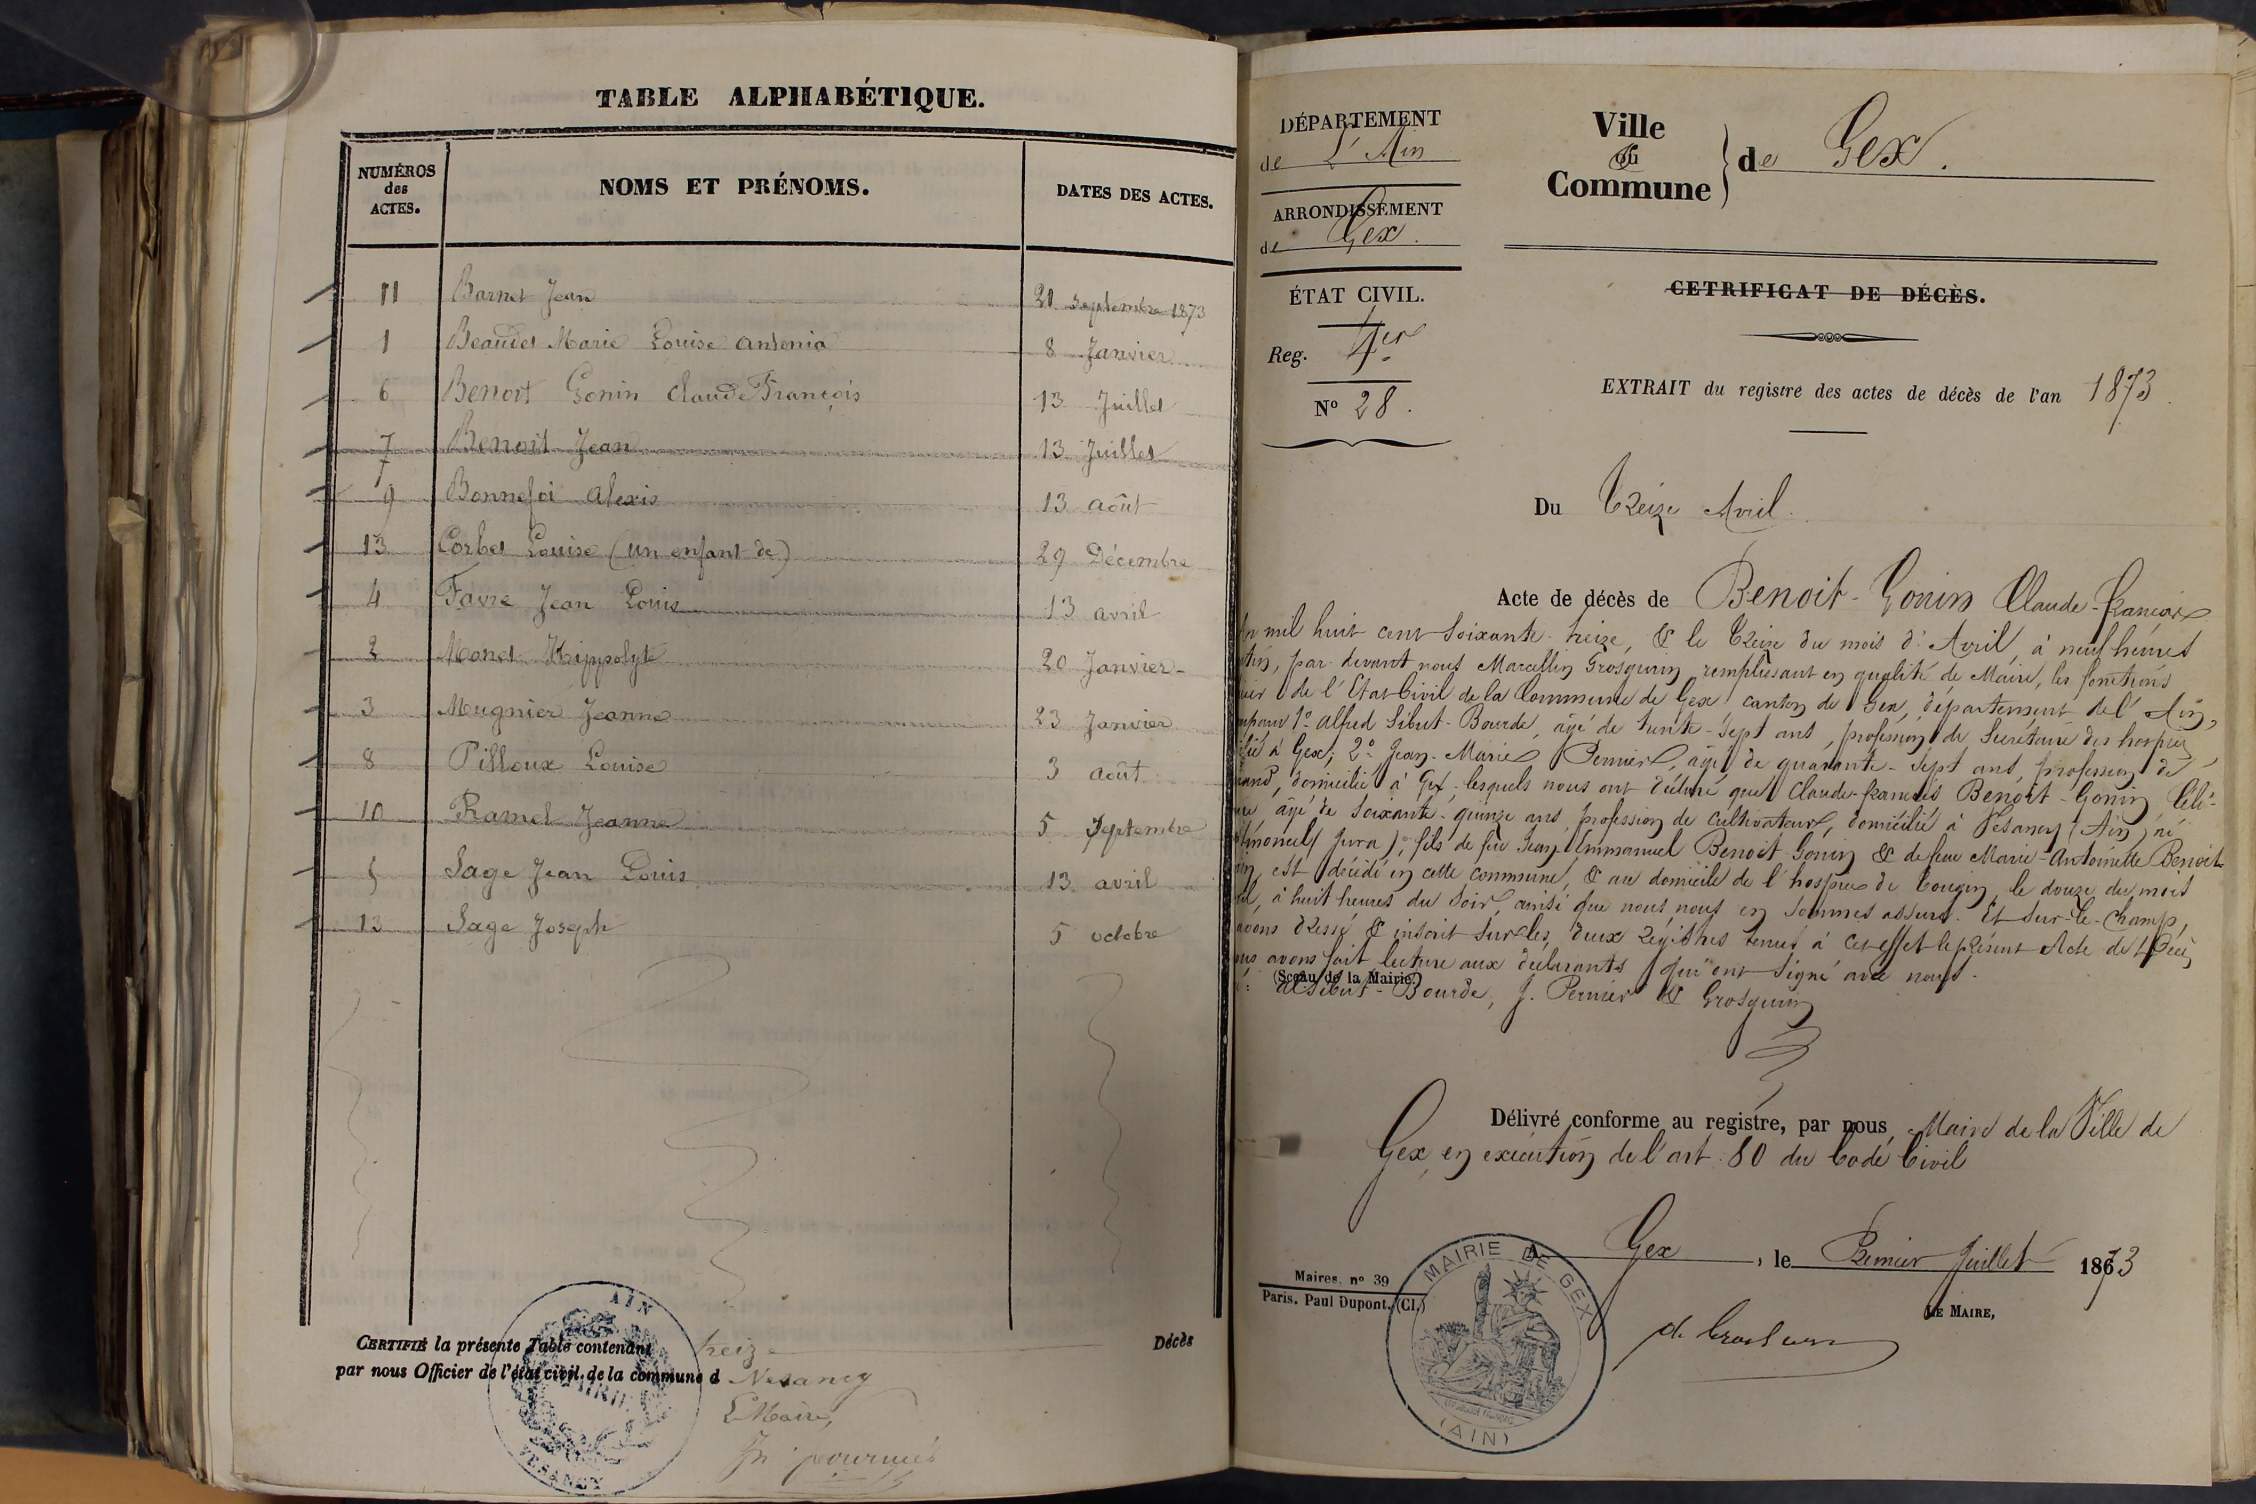 TABLE ALPHABÉTIQUE.
NUMÉROS des ACTES. NOMS ET PRÉNOMS. DATES DES ACTES.
11 Barnet Jean 21 septembre 1873
1 Beaudet Marie Louise Antonia 8 Janvier
6 Benoit Gonin Claude François 13 Juillet
7 Benoit Jean 13 Juillet
9 Bonnefoi Alexis 13 août
13 Corbet Louise (un enfant de) 29 Décembre
4 Favre Jean Louis 13 avril
2 Monet Hippolyte 20 Janvier
3 Mugnier Jeanne 23 Janvier
8 Pilloux Louise 3 août
10 Ramel Jeanne 5 Septembre
5 Sage Jean Louis 13 avril
13 Sage Joseph 5 octobre
CERTIFIÉ la présente Table contenant treize Décès
par nous Officier de l'état civil de la commune d Vesancy
L Maire,
AIN
MAIRIE
VESANCY
DÉPARTEMENT
de L'Ain
ARRONDISSEMENT
de Gex.
ÉTAT CIVIL.
Reg. 1er
No 28.
Ville
ou
Commune
de Gex.
CETRIFICAT DE DÉCÈS.
EXTRAIT du registre des actes de décès de l'an 1873
Du Treize Avril.
Acte de décès de Benoit-Gonin Claude-François
mil huit cent soixante-treize, & le Treize du mois d'Avril, à neuf heures
par devant nous Marcellin Grosgurin remplissant en qualité de Maire, les fonctions
de l'Etat Civil de la Commune de Gex canton de Gex, département de l'Ain,
1o Alfred Sibut-Bourde, âgé de trente-sept ans, profession de Secrétaire des hospices
à Gex; 2o Jean-Marie Pernier, âgé de quarante-sept ans, profession de
domicilié à Gex, lesquels nous ont déclaré que Claude-François Benoit-Gonin Céli-
âgé de soixante-quinze ans, profession de cultivateur, domicilié à Vesancy (Ain) né
(Jura), fils de feu Jean Emmanuel Benoit Gonin & de feue Marie-Antoinette Benoit
est décédé en cette commune, & au domicile de l'hospice de Tougin, le douze du mois
à huit heures du soir, ainsi que nous nous en sommes assuré. Et sur-le-champ,
avons dressé & inscrit sur les deux registres tenus à cet effet le présent Acte de Décès
avons fait lecture aux déclarants qui ont signé avec nous.
(Sceau de la Mairie.)
A Sibut-Bourde, J. Pernier & Grosgurin
Délivré conforme au registre, par nous, Maire de la Ville de
Gex en exécution de l'art. 80 du Code Civil
A Gex, le Premier Juillet 1873
LE MAIRE,
Maires, no 39
Paris. Paul Dupont. (Cl.)
MAIRIE DE GEX
(AIN)